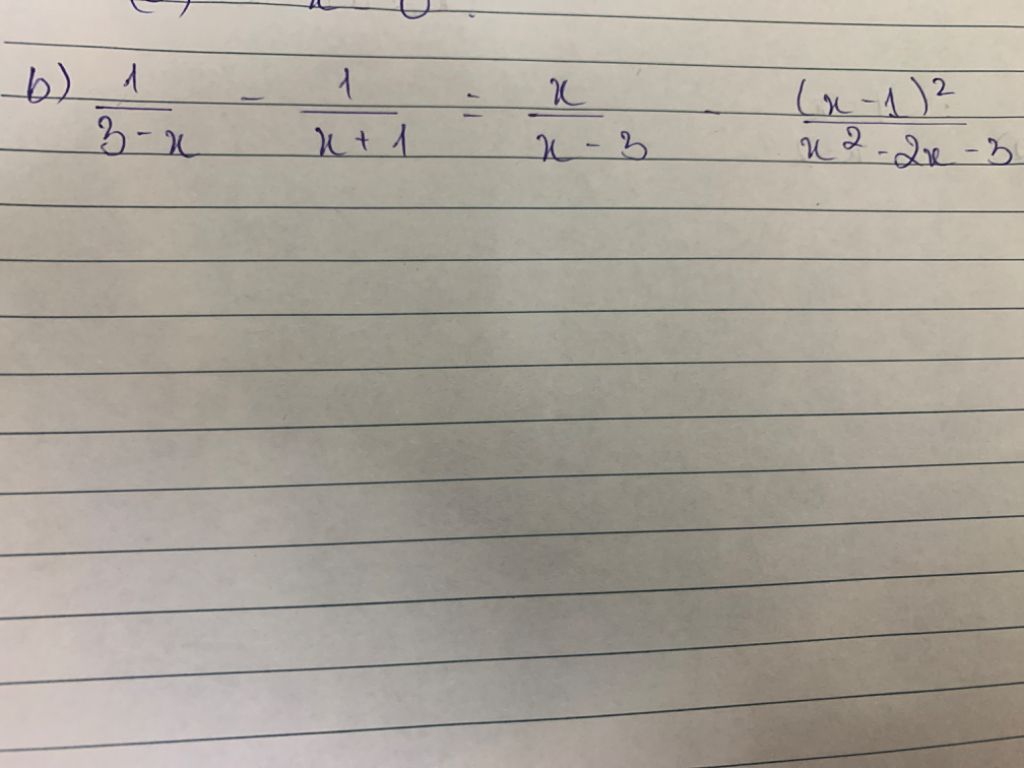 b) 1/(3 - x) - 1/(x + 1) = x/(x - 3) - (x - 1)²/(x² - 2x - 3)